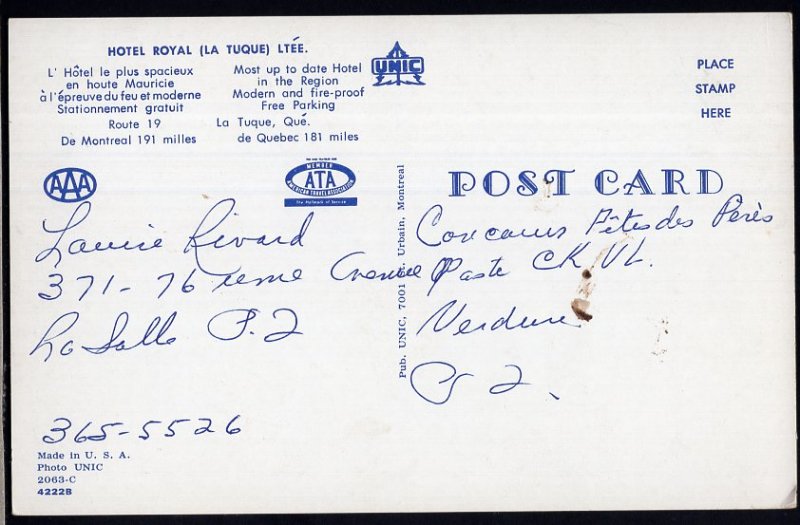 HOTEL ROYAL (LA TUQUE) LTÉE.
L' Hôtel le plus spacieux
en houte Mauricie
à l'épreuve du feu et moderne
Stationnement gratuit
Most up to date Hotel
in the Region
Modern and fire-proof
Free Parking
Route 19
La Tuque, Qué.
De Montreal 191 milles
de Quebec 181 miles
UNIC
PLACE
STAMP
HERE
AAA
MEMBER
ATA
AMERICAN TRAVEL ASSOCIATION
The Hallmark of Service
POST CARD
Pub. UNIC, 7001 St. Urbain, Montreal
Rivard
371-76 ieme Avenue
LaSalle P.Q
365-5526
Concours Fêtes des Pères
Poste CKVL.
Verdun
PQ.
Made in U. S. A.
Photo UNIC
2063-C
4222B